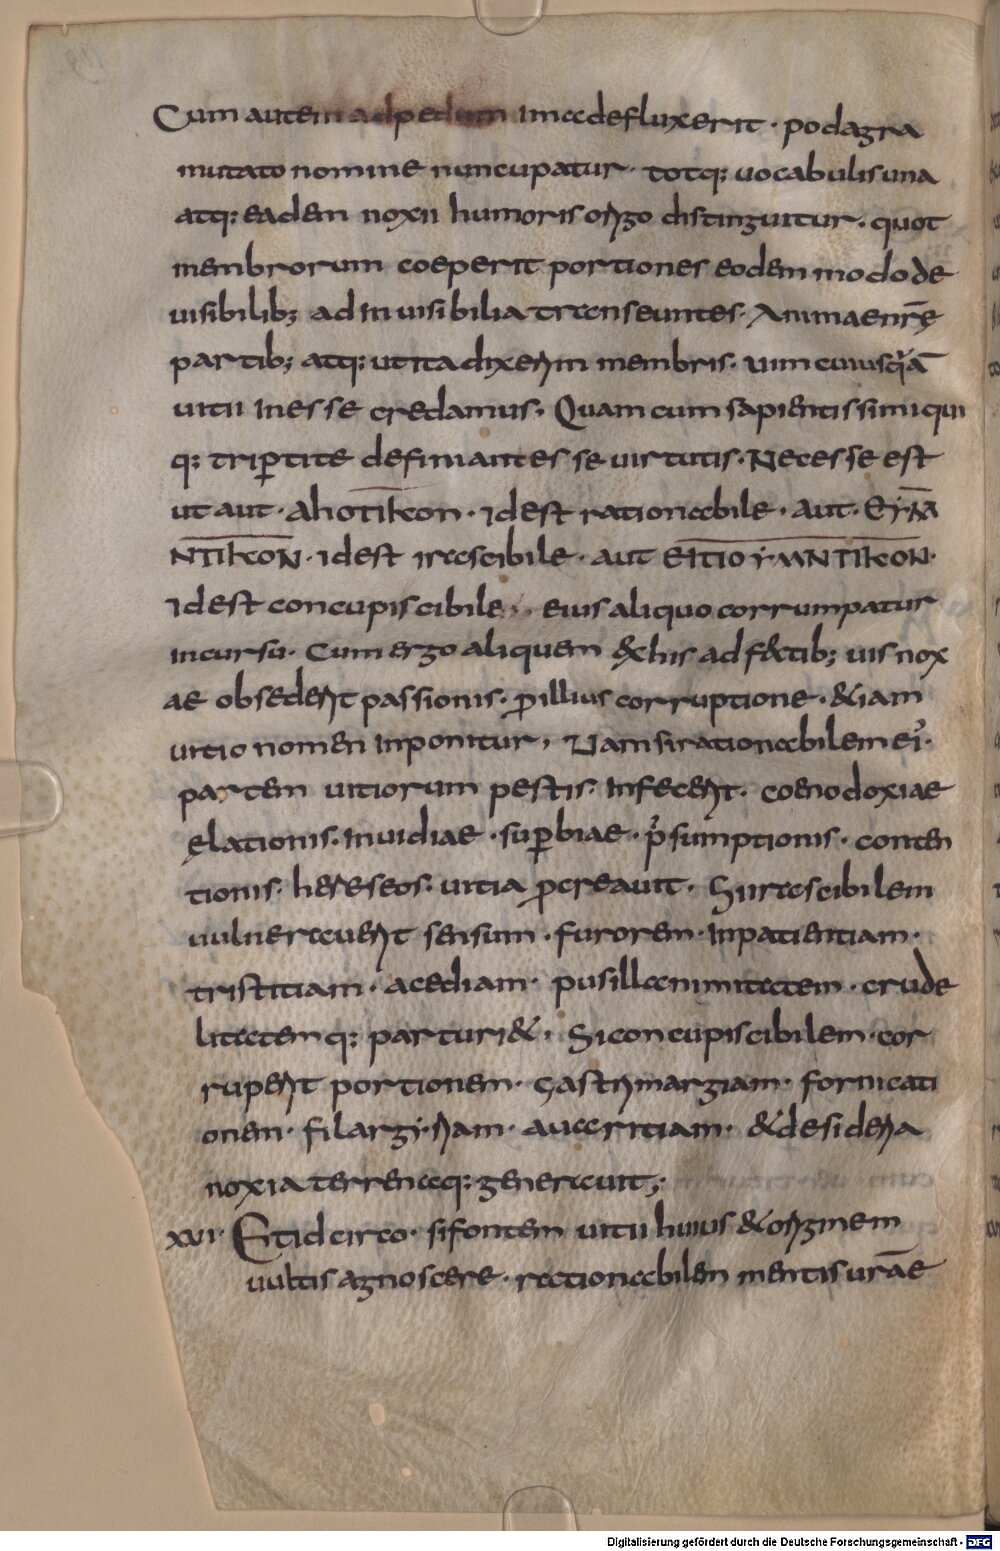 Cum autem ad pedum ima defluxerit · podagra
mutato nomine nuncupatur · totq; uocabulis una
atq; eadem noxii humoris origo distinguitur · quot
membrorum coeperit portiones eodem modo de
uisibilib; ad inuisibilia transeuntes · Animae nr̄ę
partib; atq; ut ita dixerim membris · uim cuiusq̄ā
uitii inesse credamus · Quam cum sapientissimi qui
q; triꝑtite definiantes se uirtutis · Necesse est
ut aut · ΛΗΟΤΙΚΟΝ · idest rationabile · aut · ΕΥΜ̄
ΝΤΙΚΟΝ · idest irascibile · aut ΕΠΤΙΟΥΜΝΤΙΚΟΝ ·
idest concupiscibile · eius aliquo corrumpatur
incursu · Cum ergo aliquem &his adf&ib; uis nox
ae obsederit passionis · ꝓ illius corruptione · &iam
uitio nomen inponitur · Nam si rationabilem ei᾽ ·
partem uitiorum pestis · infecerit · coenodoxiae
ęlationis · inuidiae · suꝑbiae · p̄sumptionis · conten
tionis · hereseos · uitia ꝓcreauit · Si irascibilem
uulnerauerit sensum · furorem · inpatientiam ·
tristitiam · acediam · pusillanimitatem · crude
litatemq; parturi& · Si concupiscibilem · cor
ruperit portionem · gastrimargiam · fornicati
onem · filargyriam · auaritiam · &desideria
noxia terrenaq; generauit ;
XVI · Et idcirco · si fontem uitii huius &originem
uultis agnoscere · rationabilem mentis urāe
Digitalisierung gefördert durch die Deutsche Forschungsgemeinschaft - DFG